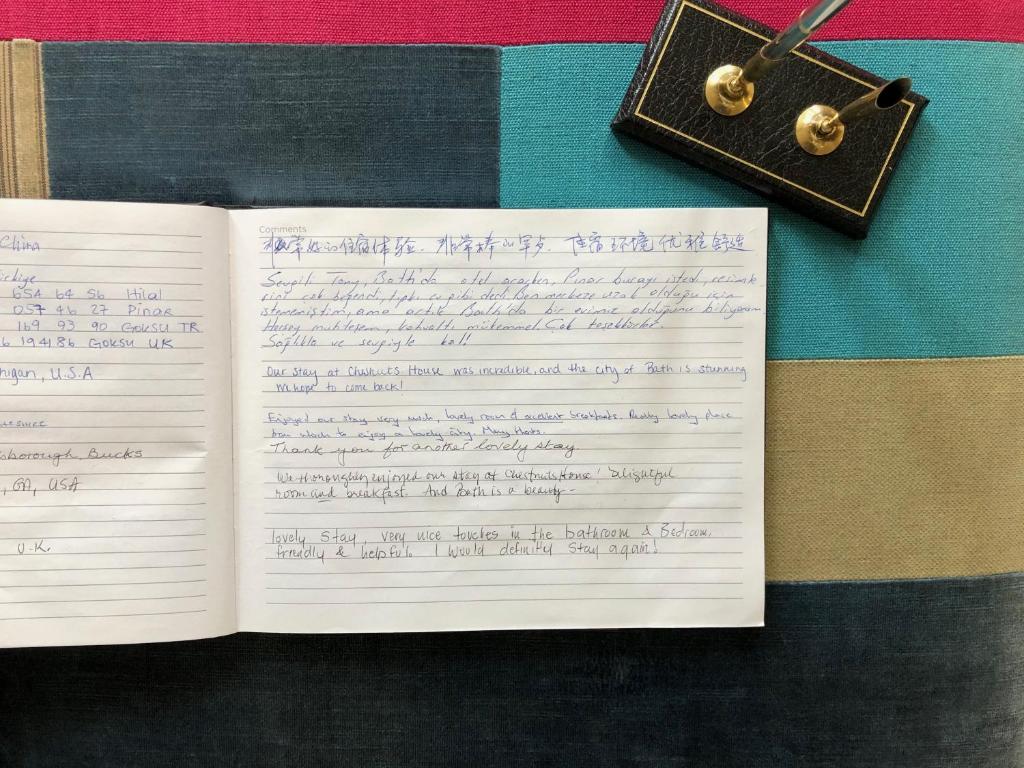 China
654 64 56 Hilal
057 46 27 Pinar
169 93 90 GOKSU TR
6 194186 GOKSU UK
higan, U.S.A
sborough, Bucks
, GA, USA
U.K.
Comments
非常好的住宿体验. 非常棒的早点. 住宿环境优雅舒适
Sevgili Tony, Bath'da otel ararken, Pınar burayı istedi, resimle
rini çok beğendi, tıpkı ev gibi dedi. Ben merkeze uzak olduğu için
istememiştim, ama artık Bath'da bir evimiz olduğunu biliyorum
Herşey muhteşem, kahvaltı mükemmel. Çok teşekkürler.
Sağlıkla ve sevgiyle kal!
Our stay at Chestnuts House was incredible, and the city of Bath is stunning
We hope to come back!
Enjoyed our stay very much, lovely room & excellent breakfasts. Really lovely place
from which to enjoy a lovely city. Many thanks.
Thank you for another lovely stay.
We thoroughly enjoyed our stay at Chestnuts House! Delightful
room and breakfast. And Bath is a beauty-
lovely stay, very nice touches in the bathroom & Bedroom,
friendly & helpful. I would definitly stay again!